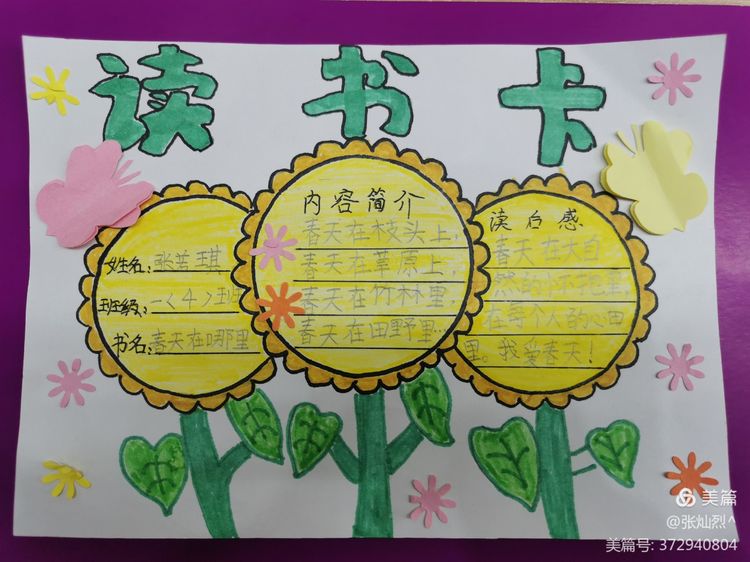 读书卡
姓名：张芸琪
班级：一〈4〉班
书名：春天在哪里
内容简介
春天在枝头上，
春天在草原上，
春天在竹林里，
春天在田野里…
读后感
春天在大自
然的怀抱里，
在每个人的心田
里。我爱春天！
美篇
@张灿烈^
美篇号：372940804